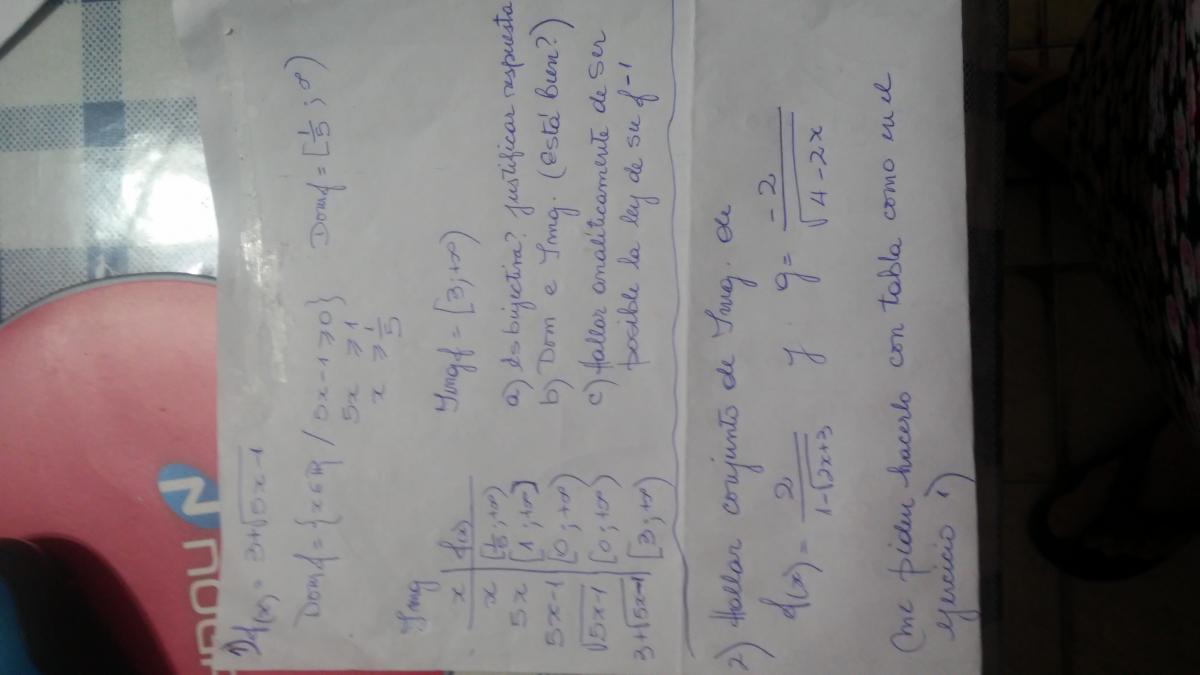 1) f(x) = 3+√5x-1
Domf = {x∈R / 5x-1≥0} Domf = [1/5 ; ∞)
5x ≥ 1
x ≥ 1/5
Img
x | f(x)
x | [1/5 ; +∞)
5x | [1 ; +∞)
5x-1 | [0 ; +∞)
√5x-1 | [0 ; +∞)
3+√5x-1 | [3 ; +∞)
Imgf = [3 ; +∞)
a) es bijectiva? justificar respuesta
b) Dom e Img. (está bien?)
c) Hallar analíticamente de ser
posible la ley de su f-1
2) Hallar conjunto de Img. de
f(x) = 2/1-√2x+3 y g = -2/√4-2x
(me piden hacerlo con tabla como en el
ejercicio 1)